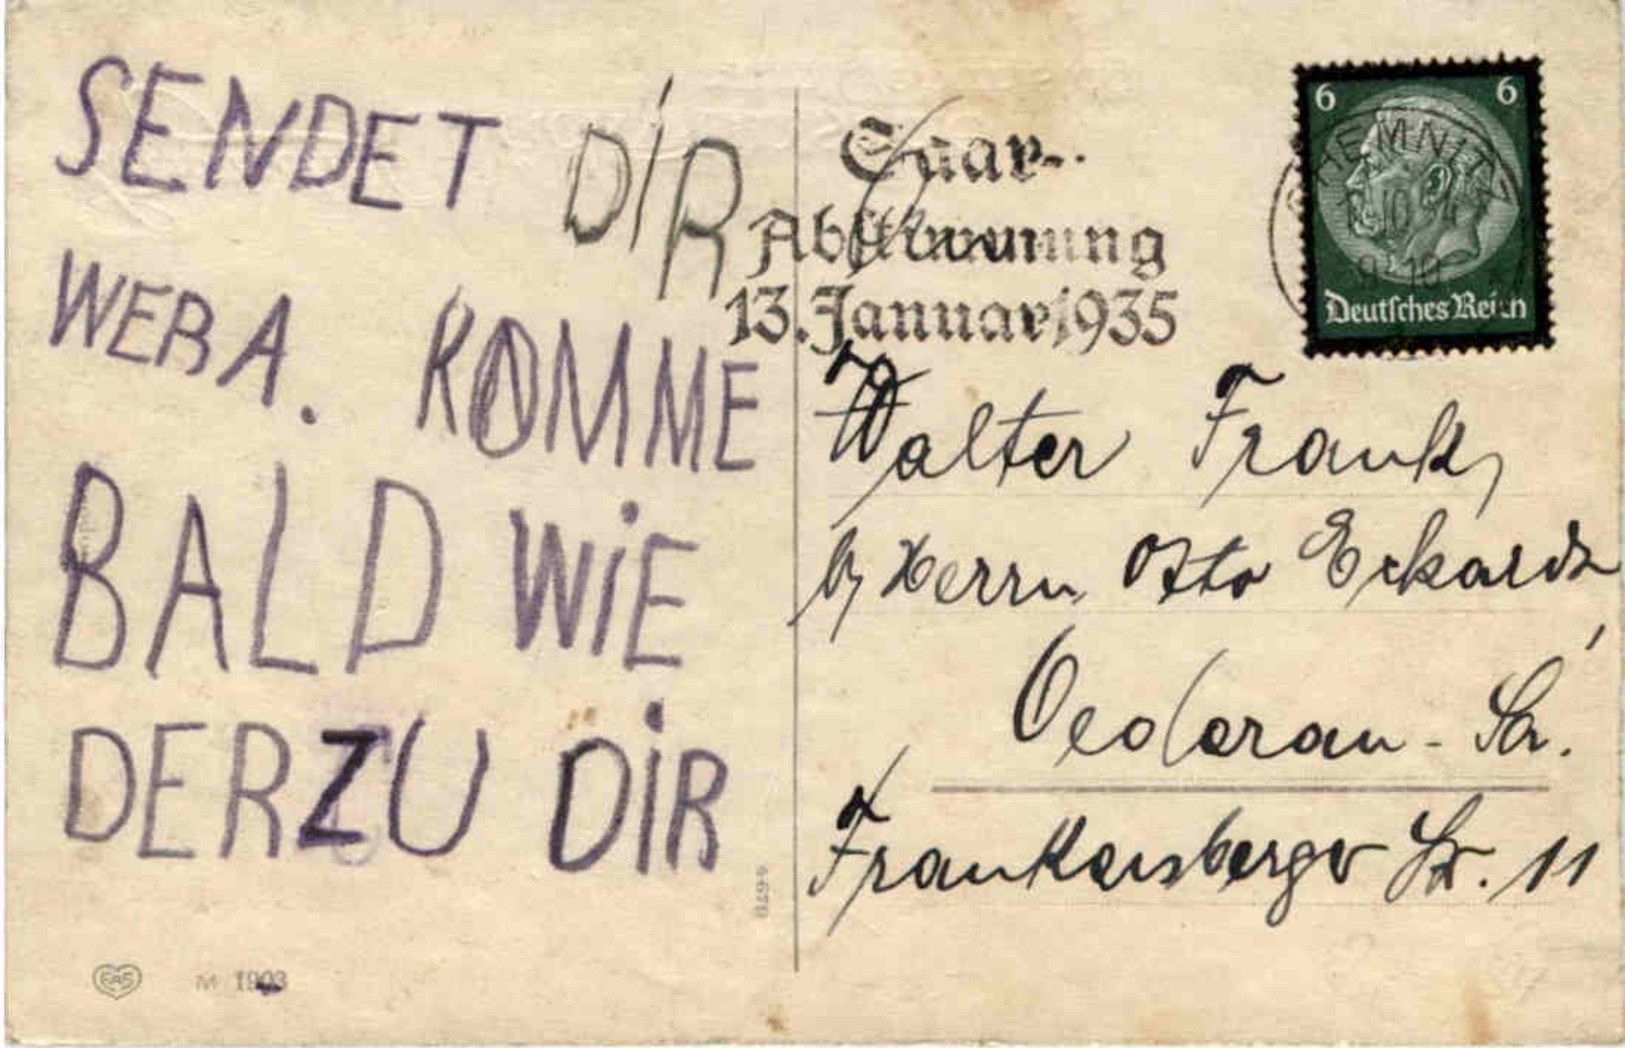 SENDET DiR
WERA. KOMME
BALD WiE
DERZU DiR
EAS M 1903
Saar-
Abstimmung
13. Januar 1935
6 6
CHEMNITZ
Deutsches Reich
Walter Frank,
b/ Herrn Otto Eckardt
Oederan - Sa.
Frankenberger Str. 11